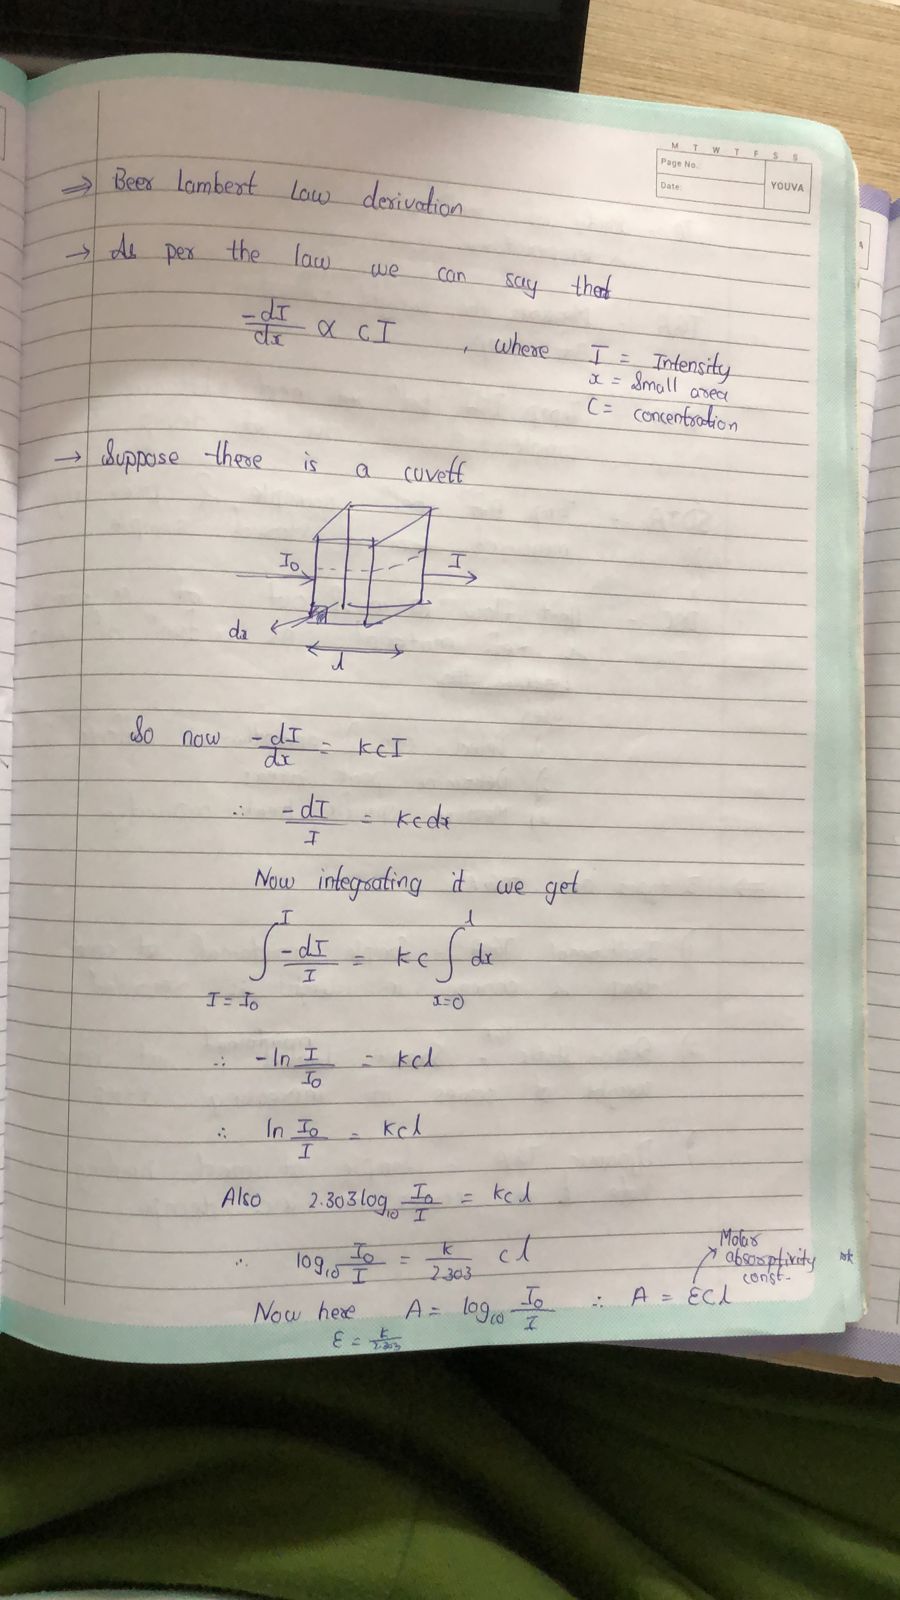 M T W T F S S
Page No.
Date:
YOUVA
⇒ Beer Lambert Law derivation
→ As per the law we can say that
-dI/dx ∝ cI , where I = Intensity
x = Small area
C = concentration
→ Suppose there is a cuvett
I₀
I
dx
l
So now -dI/dx = kcI
∴ -dI/I = kcdx
Now integrating it we get
∫_{I=I₀}^{I} -dI/I = kc ∫_{x=0}^{l} dx
∴ -ln I/I₀ = kcl
∴ ln I₀/I = kcl
Also 2.303 log₁₀ I₀/I = kcl
∴ log₁₀ I₀/I = k/2.303 cl
Molar
absorptivity
const.
Now here A = log₁₀ I₀/I ∴ A = ɛcl
ɛ = k/2.303